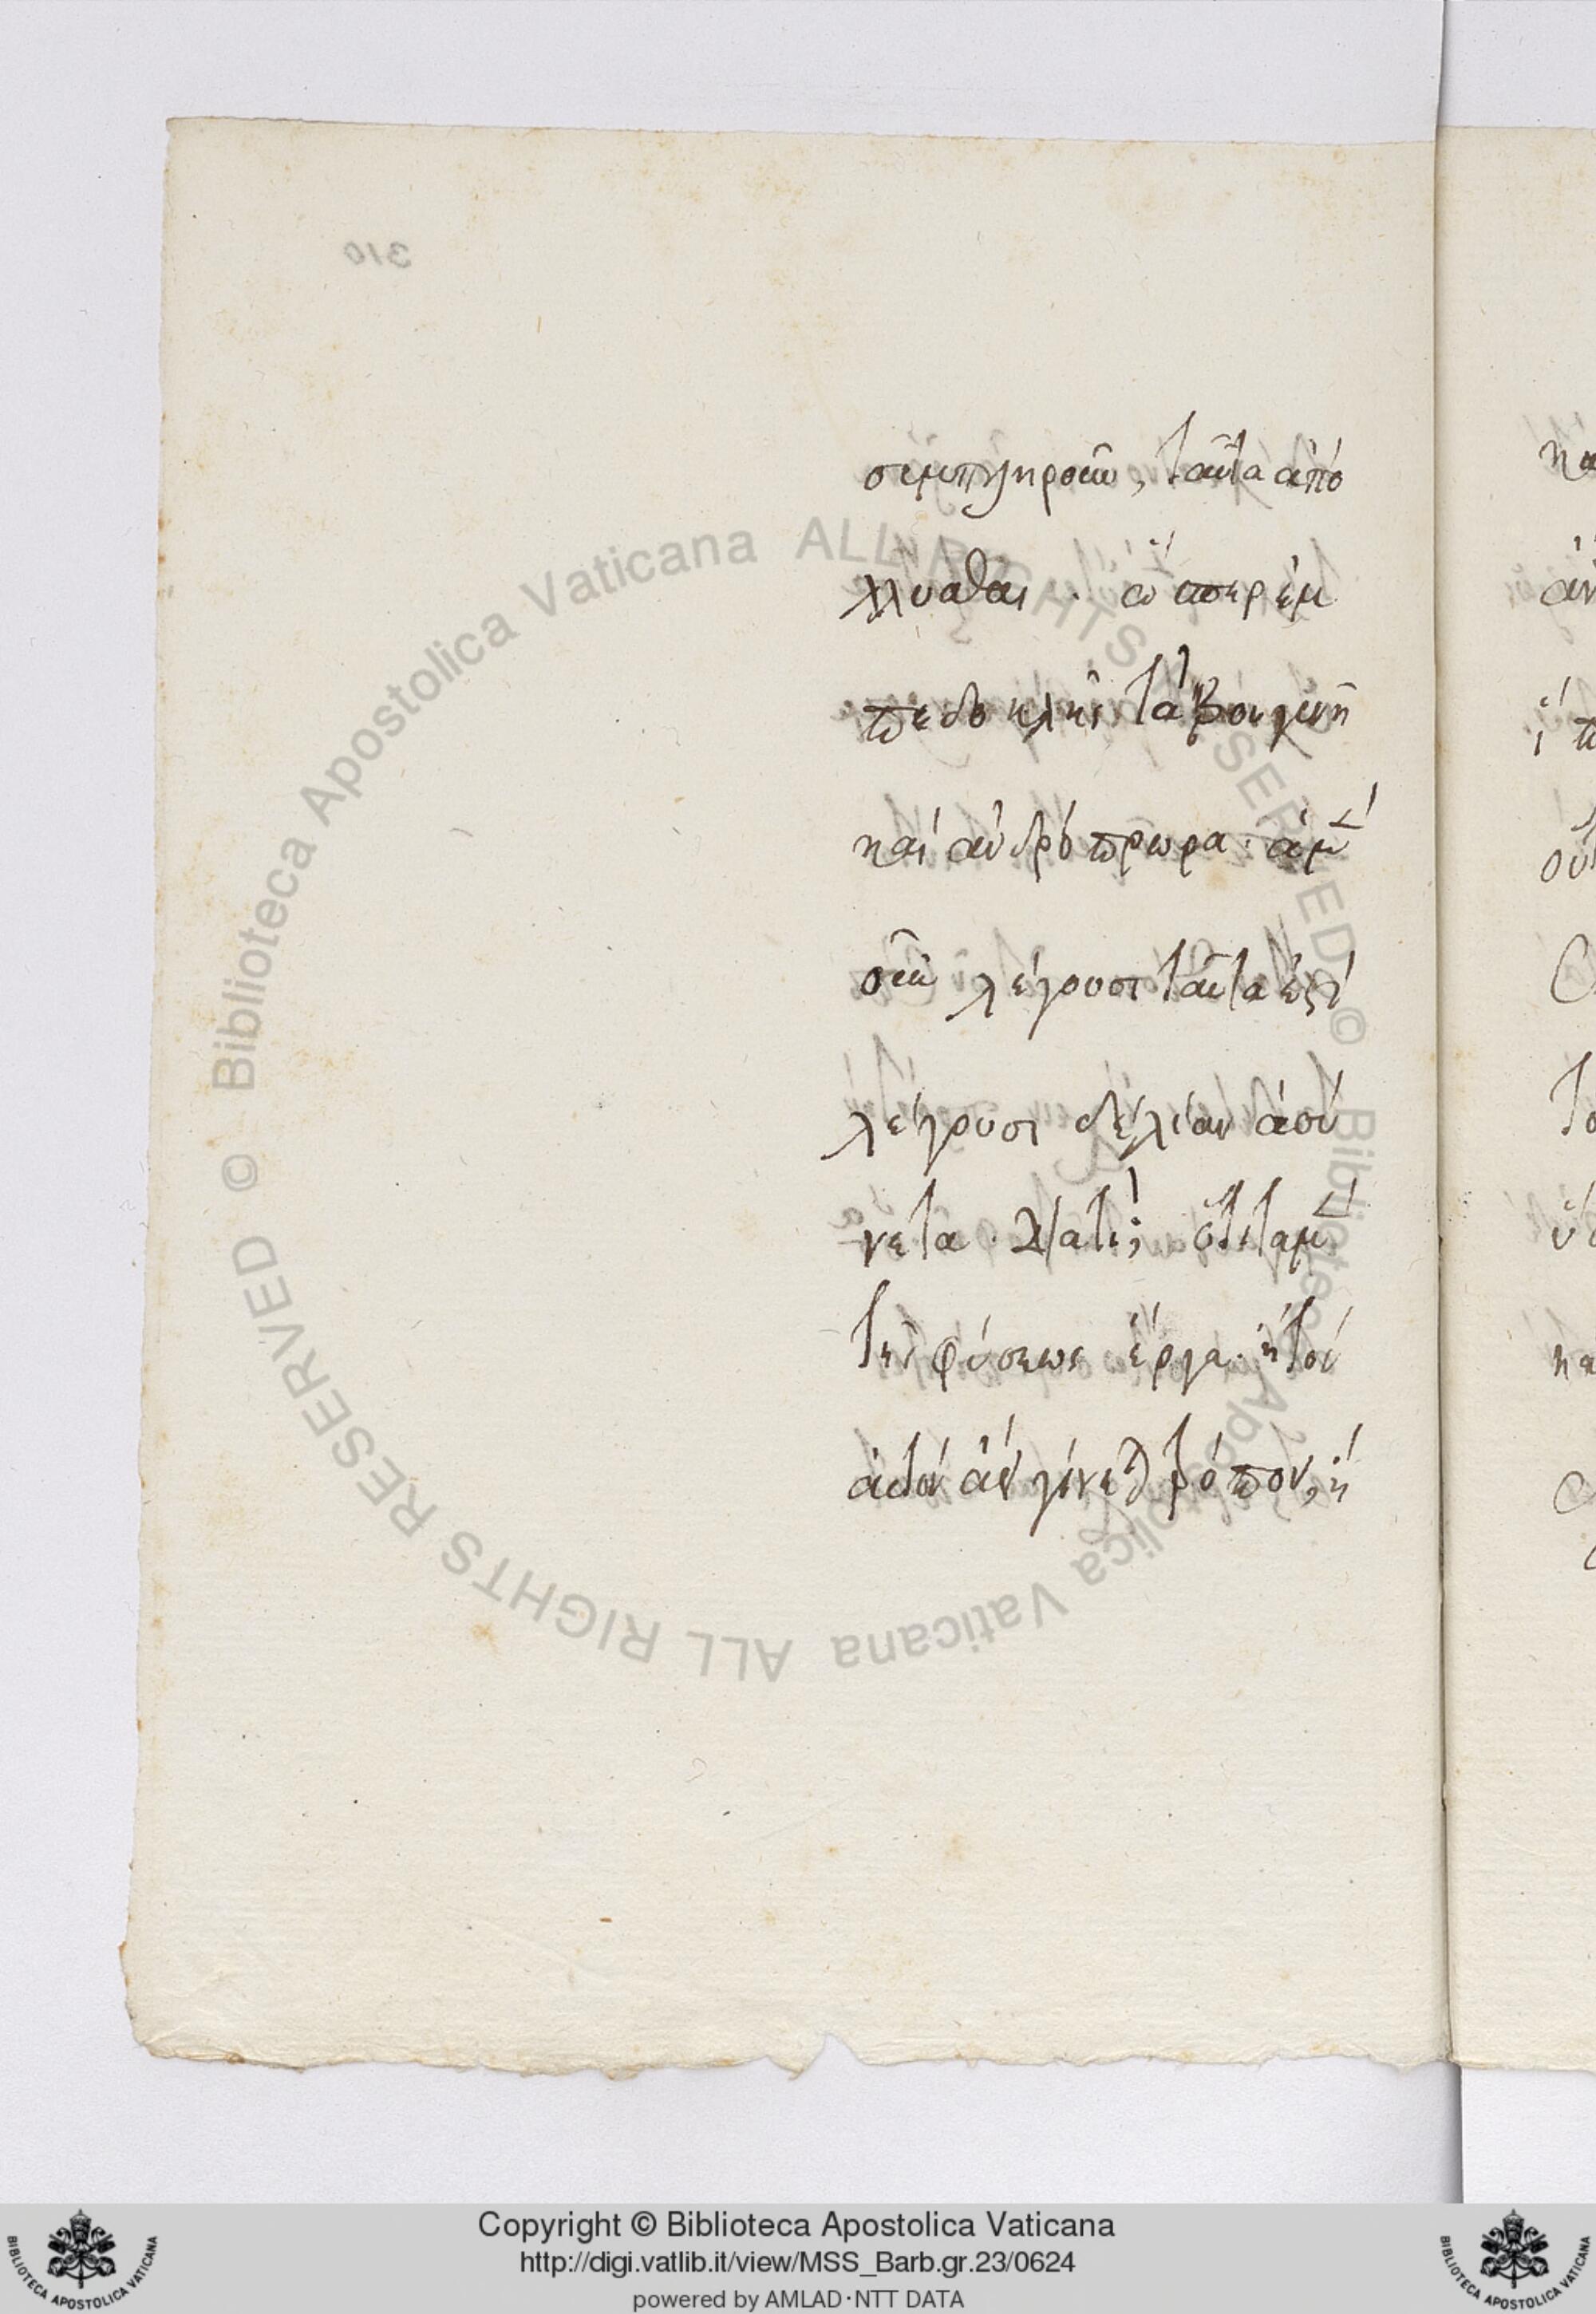 310
συμπληροῦν, ταῦτα ἀπό
λλυσθαι . ὥσπερ ἐμ
πεδοκλῆς τὰ βουγενῆ
καὶ ἀνδρόπρωρα . ἀμὴ
οὖν λέγουσι ταῦτα ἐστὶ
λέγουσι λίαν ἀσύ
νετα . διατί; ὅτι τὰ μὲν
τῆς φύσεως ἔργα . ἢ τοῦ
γίνεται τρόπον, ἢ
© Biblioteca Apostolica Vaticana ALL RIGHTS RESERVED © Biblioteca Apostolica Vaticana ALL RIGHTS RESERVED
Copyright © Biblioteca Apostolica Vaticana
http://digi.vatlib.it/view/MSS_Barb.gr.23/0624
powered by AMLAD·NTT DATA
BIBLIOTECA APOSTOLICA VATICANA
BIBLIOTECA APOSTOLICA VATICANA